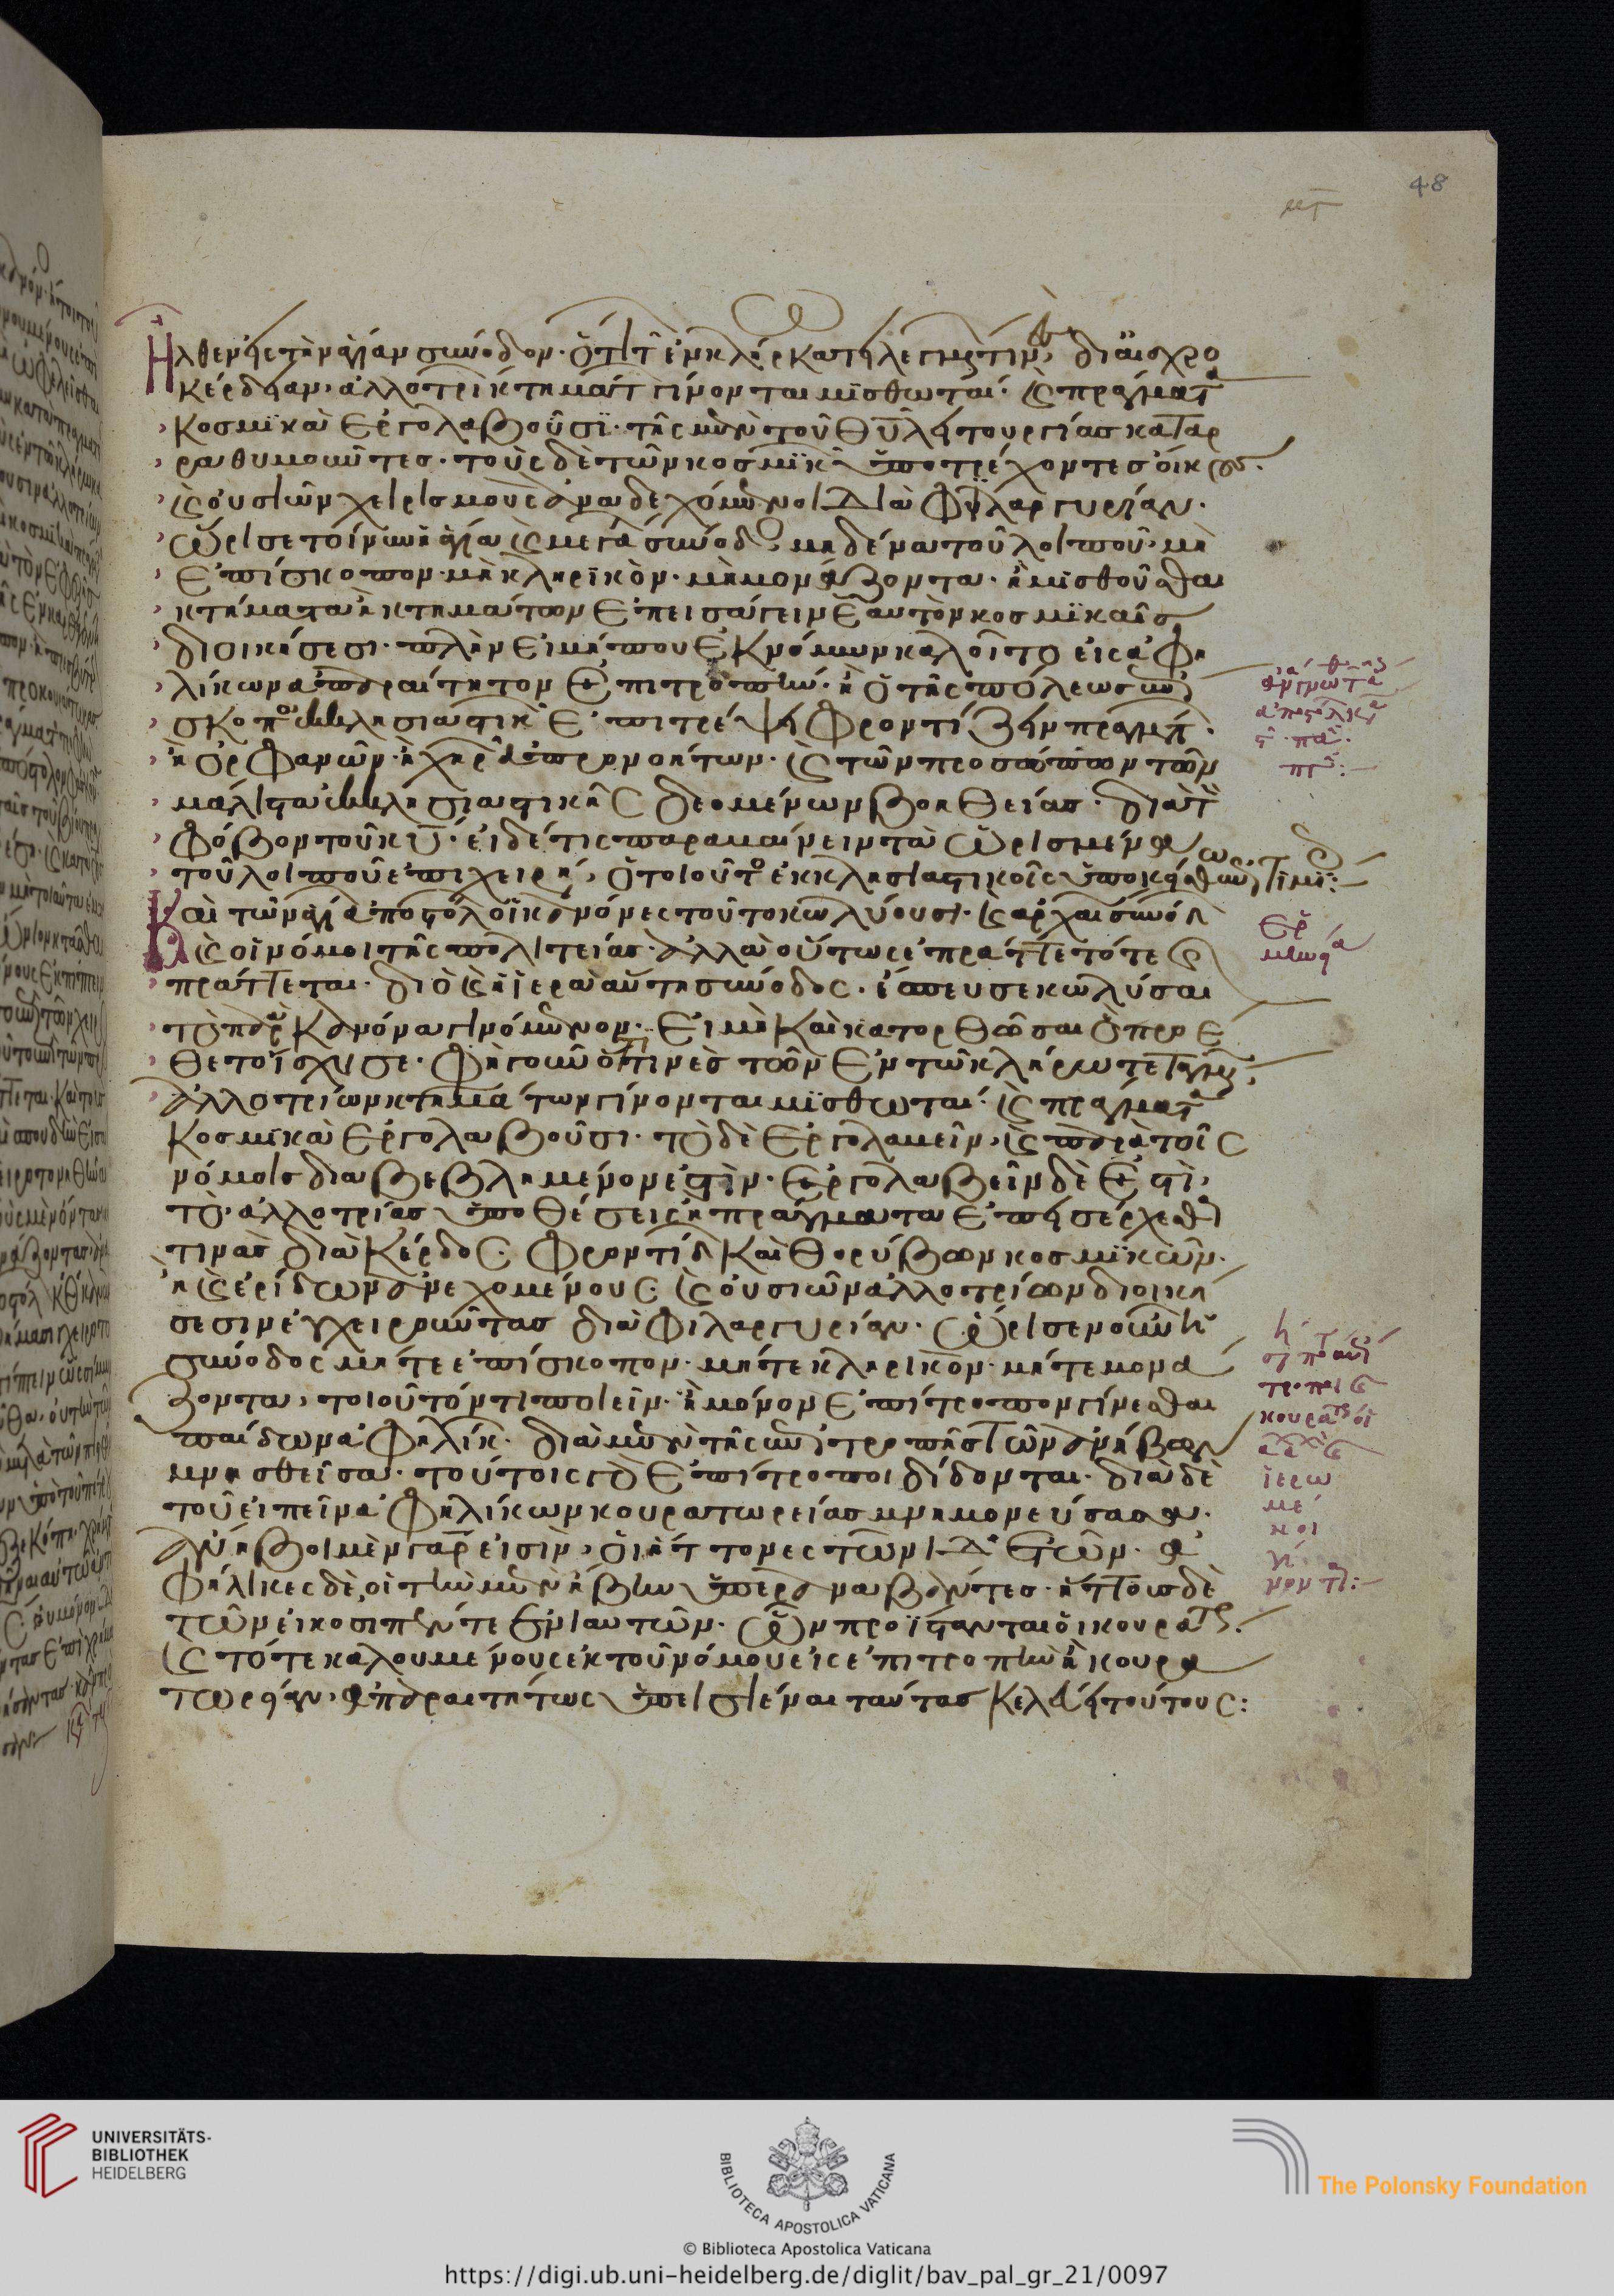 48
Ἦλθεν εἰς τὴν ἁγίαν σύνοδον· ὅτι τ ἐν κλήρ κατειλεγμ τιν, δι αἰσχρο
κέρδειαν· ἀλλοτρί κτημάτ γίνονται μισθωταί· κ πράγματα
κοσμικὰ ἐργολαβοῦσι· τῆς μὲν τοῦ θυ λειτουργίας καταρ
ραθυμοῦντες· τοὺς δὲ τῶν κοσμικ ὑποτρέχοντες οἴκους·
κ οὐσιῶν χειρισμοὺς ἀναδεχόμενοι διὰ φιλαργυρίαν·
ὥρισε τοίνυν ἡ ἁγία κ μεγά σύνοδ, μηδένα τοῦ λοιποῦ, μὴ
ἐπίσκοπον· μὴ κληρικὸν· μὴ μονάζοντα· ἢ μισθοῦσθαι
κτήματα ἢ κτημάτων ἐπεισάγειν ἑαυτὸν κοσμικαῖς
διοικήσεσι· πλὴν εἰ μή που ἐκ νόμων καλοῖτο εἰς ἀφη
λίκων ἀπαραίτητον ἐπιτροπήν· ἢ ὁ τῆς πόλεως ἐπί
σκοπο ἐκκλησιαστικ ἐπιτρέψει φροντίζειν πραγμ·
ἢ ὀρφανῶν· ἢ χηρ ἀπρονοήτων· κ τῶν προσώπων τῶν
μάλιστα ἐκκλησιαστικῆς δεομένων βοηθείας· διὰ τ
φόβον τοῦ κυ· εἰ δέ τις παραβαίνειν τὰ ὡρισμένα
τοῦ λοιποῦ ἐπιχειρή, ὁ τοιοῦτο ἐκκλησιαστικοῖς ὑποκείσθω
Καὶ τῶν ἁγί ἀποστόλ οἱ κανόνες τοῦτο κωλύουσι· κ αἱ
κ οἱ νόμοι τῆς πολιτείας· ἀλλὰ οὕτως ἐπράττετο τότε
πράττεται· διὸ κ ἡ ἱερὰ αὕτη σύνοδος· ἔσπευσε κωλύσαι
τὸ παρ κανόνα γινόμενον· εἰ μὴ καὶ κατορθῶσαι ὃ προέ
θετο ἴσχυσε· φη γοῦν ὅτι τινὲς τῶν ἐν τῶ κλήρω τεταγμ,
ἀλλοτρίων κτημάτων γίνονται μισθωταί· κ πράγματα
κοσμικὰ ἐργολαβοῦσι· τὸ δὲ ἐργολαβεῖν, κ παρὰ τοῖς
νόμοις διαβεβλημένον ἐστίν· ἐργολαβεῖν δὲ ἐστὶ,
τὸ ἀλλοτρίας ὑποθέσεις ἢ πράγματα ἐπεισέρχεσθαι
τινὰς διὰ κέρδος· φροντίδ καὶ θορύβων κοσμικῶν·
ἢ κ ἐρίδων ἀνεχομένους· κ οὐσιῶν ἀλλοτρίων διοική
σεσιν ἐγχειροῦντας διὰ φιλαργυρίαν· ὥρισεν οὖν ἡ
σύνοδος μήτε ἐπίσκοπον· μήτε κληρικὸν· μήτε μονά
ζοντα, τοιοῦτόν τι ποιεῖν· ἢ μόνον ἐπίτροπον γίνεσθαι
παίδων ἀφηλίκ· διὰ μὲν τῆς ἐπιτροπῆς τῶν ἀνήβων
μνησθεῖσα· τούτοις γὰρ ἐπίτροποι δίδονται· διὰ δὲ
τοῦ εἰπεῖν ἀφηλίκων κουρατωρείας μνημονεύσασα·
ἄνηβοι μὲν γάρ εἰσιν, οἱ ἥττονες τῶν ιδ ἐτῶν· ἀ
φήλικες δὲ, οἱ τὴν μὲν ἥβην ὑπεραναβάντες· ἥττους δὲ
τῶν εἰκοσιπέντε ἐνιαυτῶν· ὧν προίστανται οἱ κουράτ·
κ τότε καλουμένους ἐκ τοῦ νόμου εἰς ἐπιτροπὴν ἢ κουρα
τωρείαν, ἀπαραιτήτως ὑπεισιέναι ταύτας κελεύει τούτους:
ἑρ
μηνεία
κουράτ οἱ
ἱερω
μέ
νοι
γί
νονται:
UNIVERSITÄTS-
BIBLIOTHEK
HEIDELBERG
BIBLIOTECA APOSTOLICA VATICANA
The Polonsky Foundation
© Biblioteca Apostolica Vaticana
https://digi.ub.uni-heidelberg.de/diglit/bav_pal_gr_21/0097